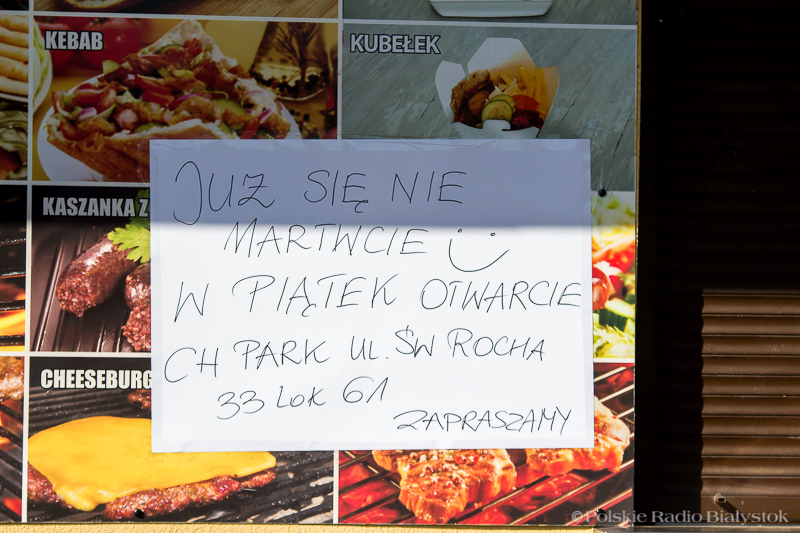 KEBAB
KUBEŁEK
KASZANKA Z
CHEESEBURG
JUZ SIĘ NIE
MARTWCIE
W PIĄTEK OTWARCIE
CH PARK UL. ŚW ROCHA
33 LOK 61
ZAPRASZAMY
©Polskie Radio Białystok